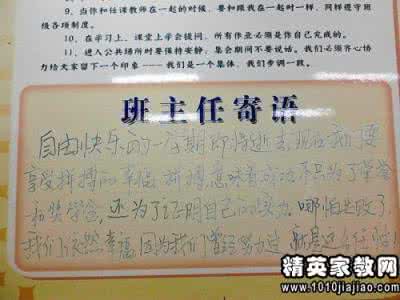 9、当你和任课教师在一起的时候，要和跟我在一起时一样，同样遵守班
级各项制度。
10、在学习上，课堂上学会提问，所有作业必须是你自己完成的。
11、进入公共场所时要保持安静；集会期间不要说话。我们必须齐心协
力给大家留下一个印象——我们是一个集体，我们步调一致。
班主任寄语
自由快乐的一星期即将逝去，现在我们要
享受拼搏的幸福，拼搏意味着成功，不只为了荣誉
和奖学金，还为了证明自己的实力，哪怕失败了，
我们依然幸福，因为我们曾经努力过，就是这么任性！
精英家教网
www.1010jiajiao.com